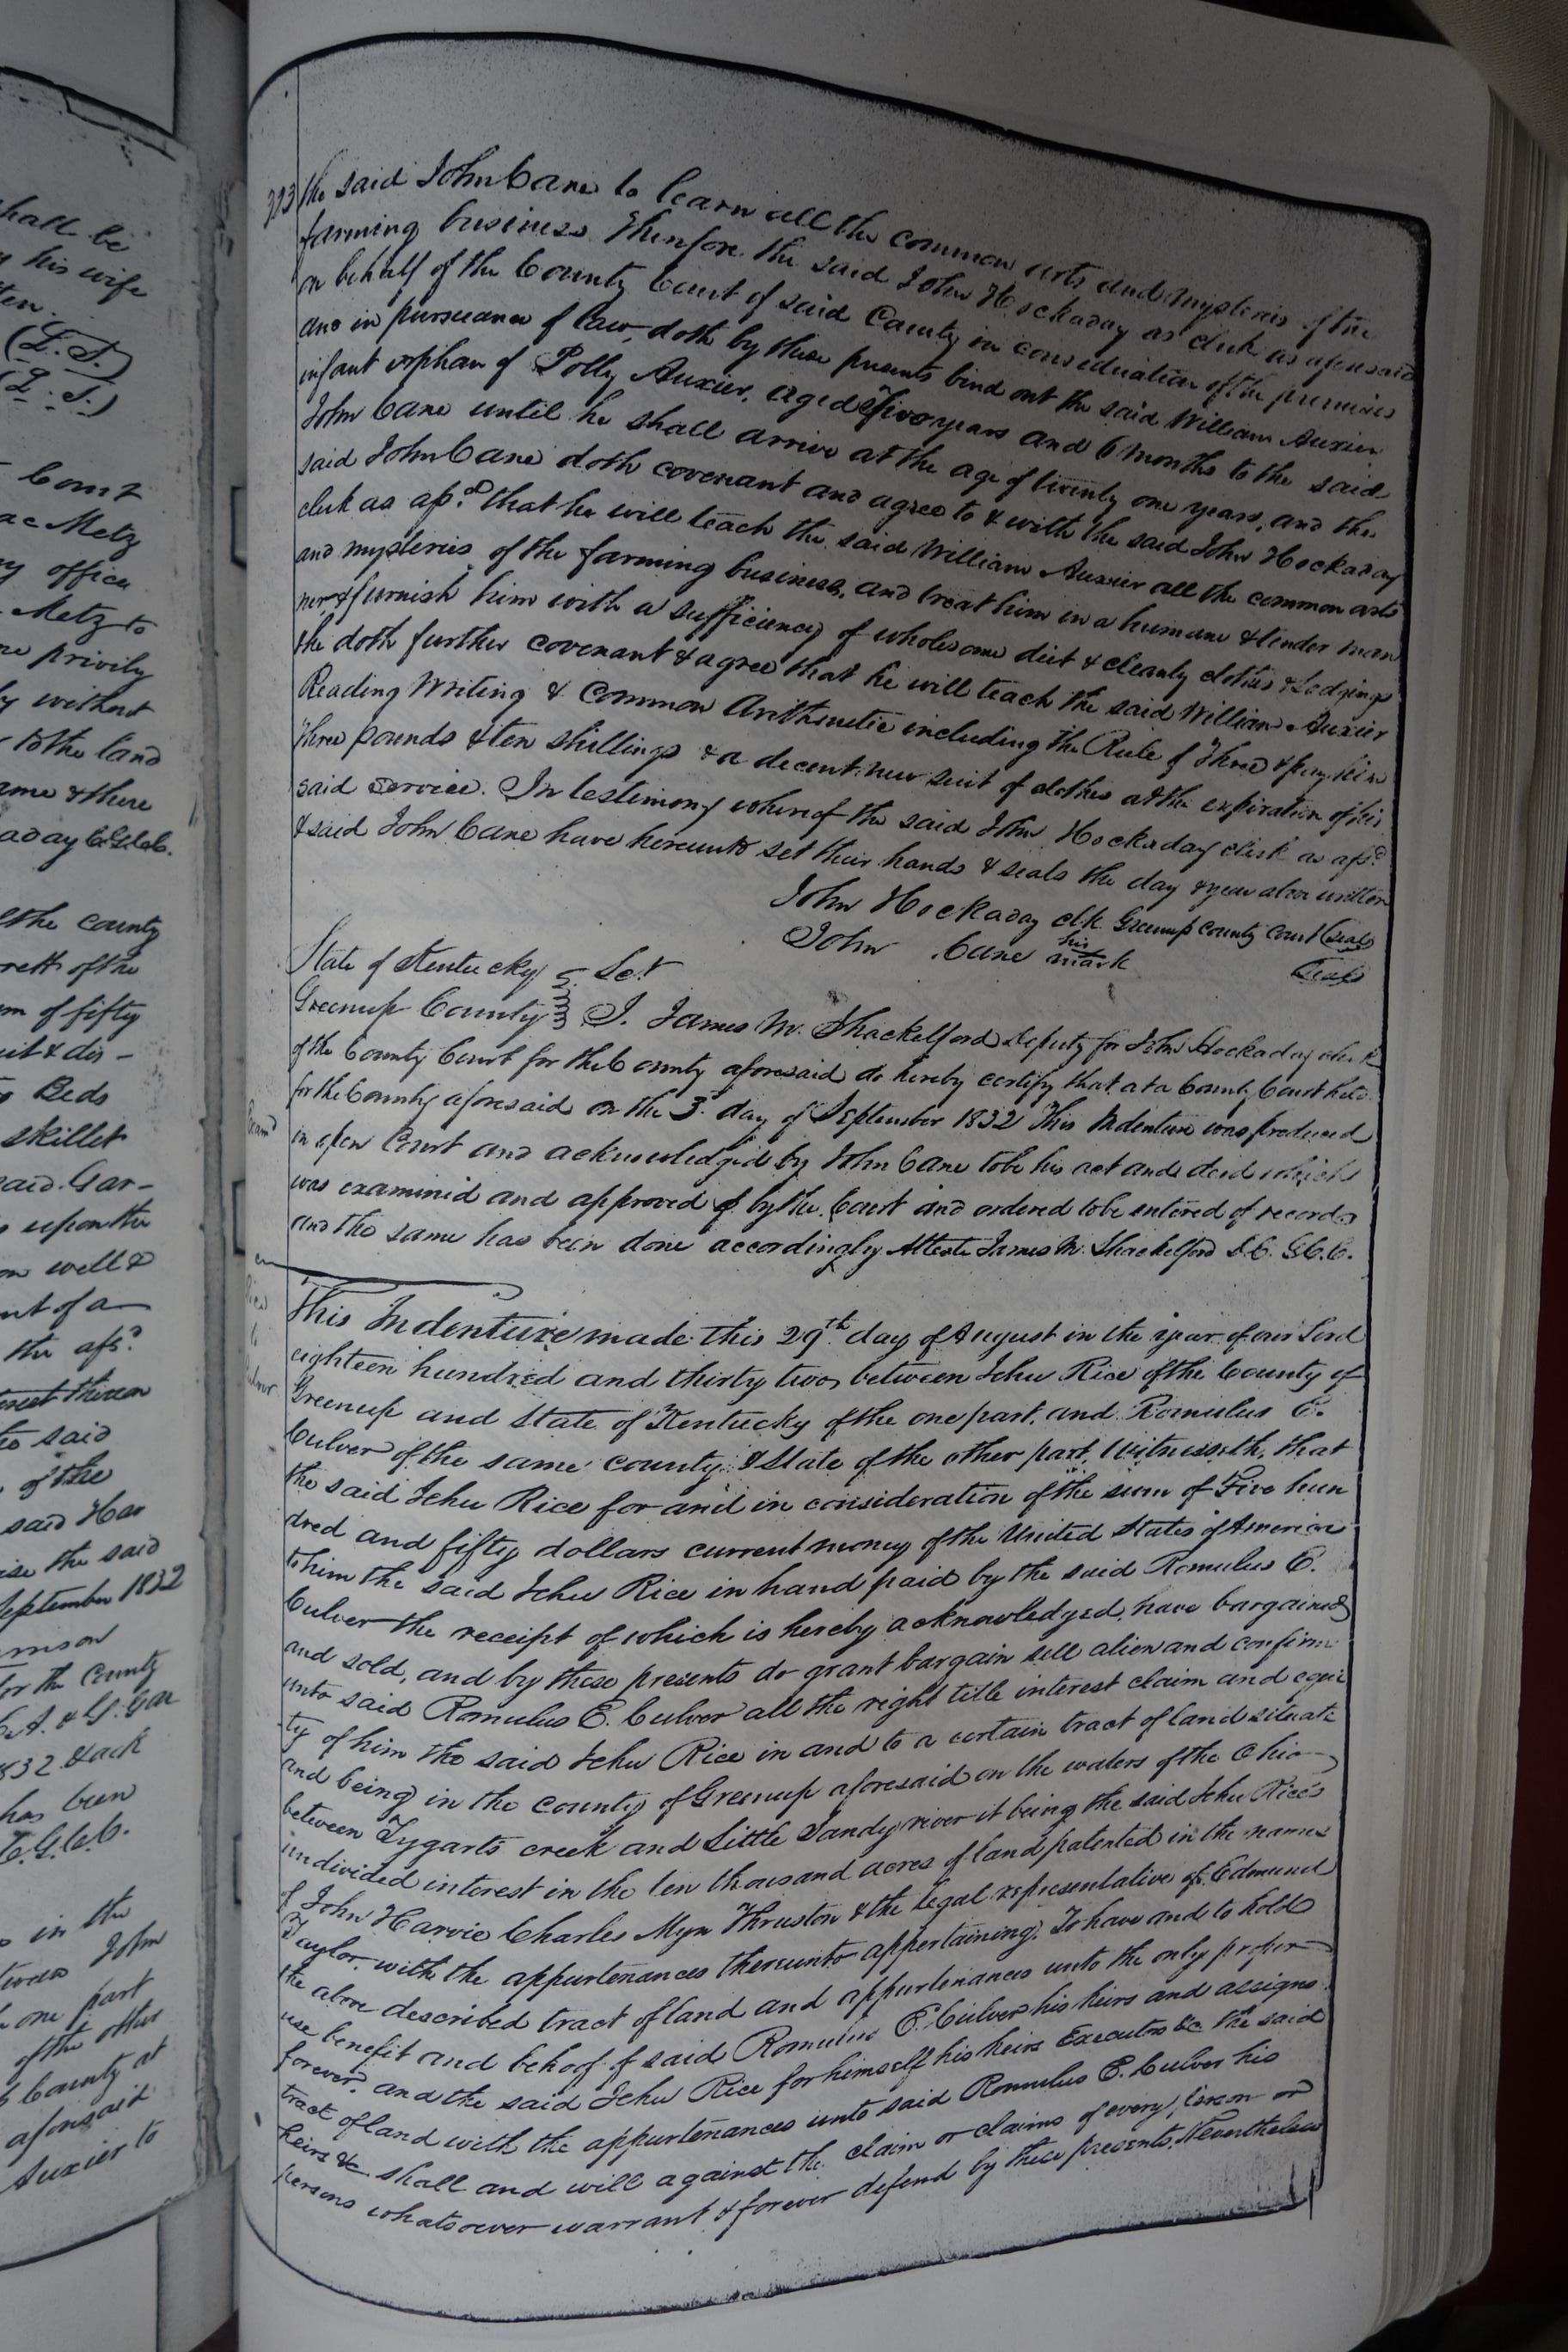 shall be
his wife
(L.S.)
(L.S.)
Court
Metz
office
Metz to
privily
without
to the land
& there
the county
of the
of fifty
& dis-
Beds
skillet
said Gar-
upon the
well &
of a
the afsd.
said
of the
said Har
the said
September 1832
for the County
1832
has been
in the
John
one part
of the other
County at
aforesaid
Auxier to
223
the said John Cane to learn all the common arts and mysteries of the
farming business Therefore the said John Hockaday as clerk as aforesaid
on behalf of the County Court of said County in consideration of the premises
and in pursuance of law, doth by these presents bind out the said William Auxier
infant orphan of Polly Auxier, aged five years and 6 months to the said
John Cane until he shall arrive at the age of twenty one years, and the
said John Cane doth covenant and agree to & with the said John Hockaday
clerk as afsd. that he will teach the said William Auxier all the common arts
and mysteries of the farming business, and treat him in a humane & tender man
ner & furnish him with a sufficiency of wholesome diet & cleanly clothes & Lodgings
the doth further covenant & agree that he will teach the said William Auxier
Reading Writing & Common Arithmetic including the Rule of Three & pay him
three pounds & ten shillings & a decent new suit of clothes at the expiration of his
said service. In testimony whereof the said John Hockaday clerk as afsd.
& said John Cane have hereunto set their hands & seals the day & year above written
John Hockaday clk Greenup County Court (Seal)
John Cane his mark (Seal)
State of Kentucky Sct
Greenup County I. James W. Shackelford Deputy for John Hockaday clerk
of the County Court for the County aforesaid do hereby certify that at a County Court held
for the County aforesaid on the 3d. day of September 1832 This Indenture was produced
in open Court and acknowledged by John Cane to be his act and deed which
was examined and approved of by the Court and ordered to be entered of record
and the same has been done accordingly Atteste James W. Shackelford D.C. G.C.C.
Rice
to
Culver
This Indenture made this 29th day of August in the year of our Lord
eighteen hundred and thirty two between Jehu Rice of the County of
Greenup and State of Kentucky of the one part, and Romulus E.
Culver of the same county & State of the other part, Witnesseth, that
the said Jehu Rice for and in consideration of the sum of Five hun
dred and fifty dollars current money of the United States of America
to him the said Jehu Rice in hand paid by the said Romulus E.
Culver the receipt of which is hereby acknowledged, have bargained
and sold, and by these presents do grant bargain sell alien and confirm
unto said Romulus E. Culver all the right title interest claim and equi
ty of him the said Jehu Rice in and to a certain tract of land situate
and being in the county of Greenup aforesaid on the waters of the Ohio
between Tygarts creek and Little Sandy river it being the said Jehu Rice's
undivided interest in the ten thousand acres of land patented in the names
of John Harvie Charles Myn Thruston & the legal representative of Edmund
Taylor. with the appurtenances thereunto appertaining. To have and to hold
the above described tract of land and appurtenances unto the only proper
use benefit and behoof of said Romulus E. Culver his heirs and assigns
forever. and the said Jehu Rice for himself his heirs Executors &c the said
tract of land with the appurtenances unto said Romulus E. Culver his
heirs &c shall and will against the claim or claims of every person or
persons whatsoever warrant & forever defend by these presents, Nevertheless